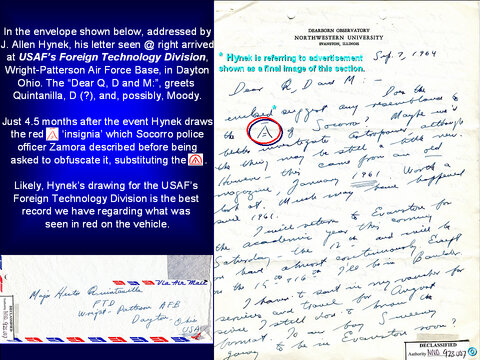 In the envelope shown below, addressed by
J. Allen Hynek, his letter seen @ right arrived
at USAF's Foreign Technology Division,
Wright-Patterson Air Force Base, in Dayton
Ohio. The "Dear Q, D and M:", greets
Quintanilla, D (?), and, possibly, Moody.
Just 4.5 months after the event Hynek draws
the red 'insignia' which Socorro police
officer Zamora described before being
asked to obfuscate it, substituting the
Likely, Hynek's drawing for the USAF's
Foreign Technology Division is the best
record we have regarding what was
seen in red on the vehicle.
Via Air Mail
Major Hector Quintanilla
FTD
Wright-Patterson AFB
Dayton, Ohio
USA
DEARBORN OBSERVATORY
NORTHWESTERN UNIVERSITY
EVANSTON, ILLINOIS
* Hynek is referring to advertisement
shown as a final image of this section.
Sep. 7, 1964
Dear Q, D and M:-
* Does the
enclosed suggest any resemblance to
the A of Socorro? Maybe we'd
better investigate Astropower, although
the thing may be still a bit new.
However this came from an old
magazine, January 1961. Worth a
look at. Much may have happened
since 1961.
I will return to Evanston for
the academic year this coming
Saturday the 12th and will be
on hand almost continuously except
the 15th + 16th I'll be in Boulder.
I haven't sent in my voucher for
services and travel for August
since I still don't know the
format. Is my boy Sweeney
going to be in Evanston soon?
DECLASSIFIED
Authority NND 923007